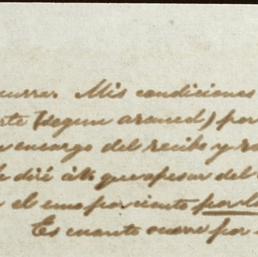 currer. Mis condiciones
te (segun arancel) por
encargo del recibo y
le diré á V. que apesar del
el uno por ciento por la
Es cuanto ocurre por